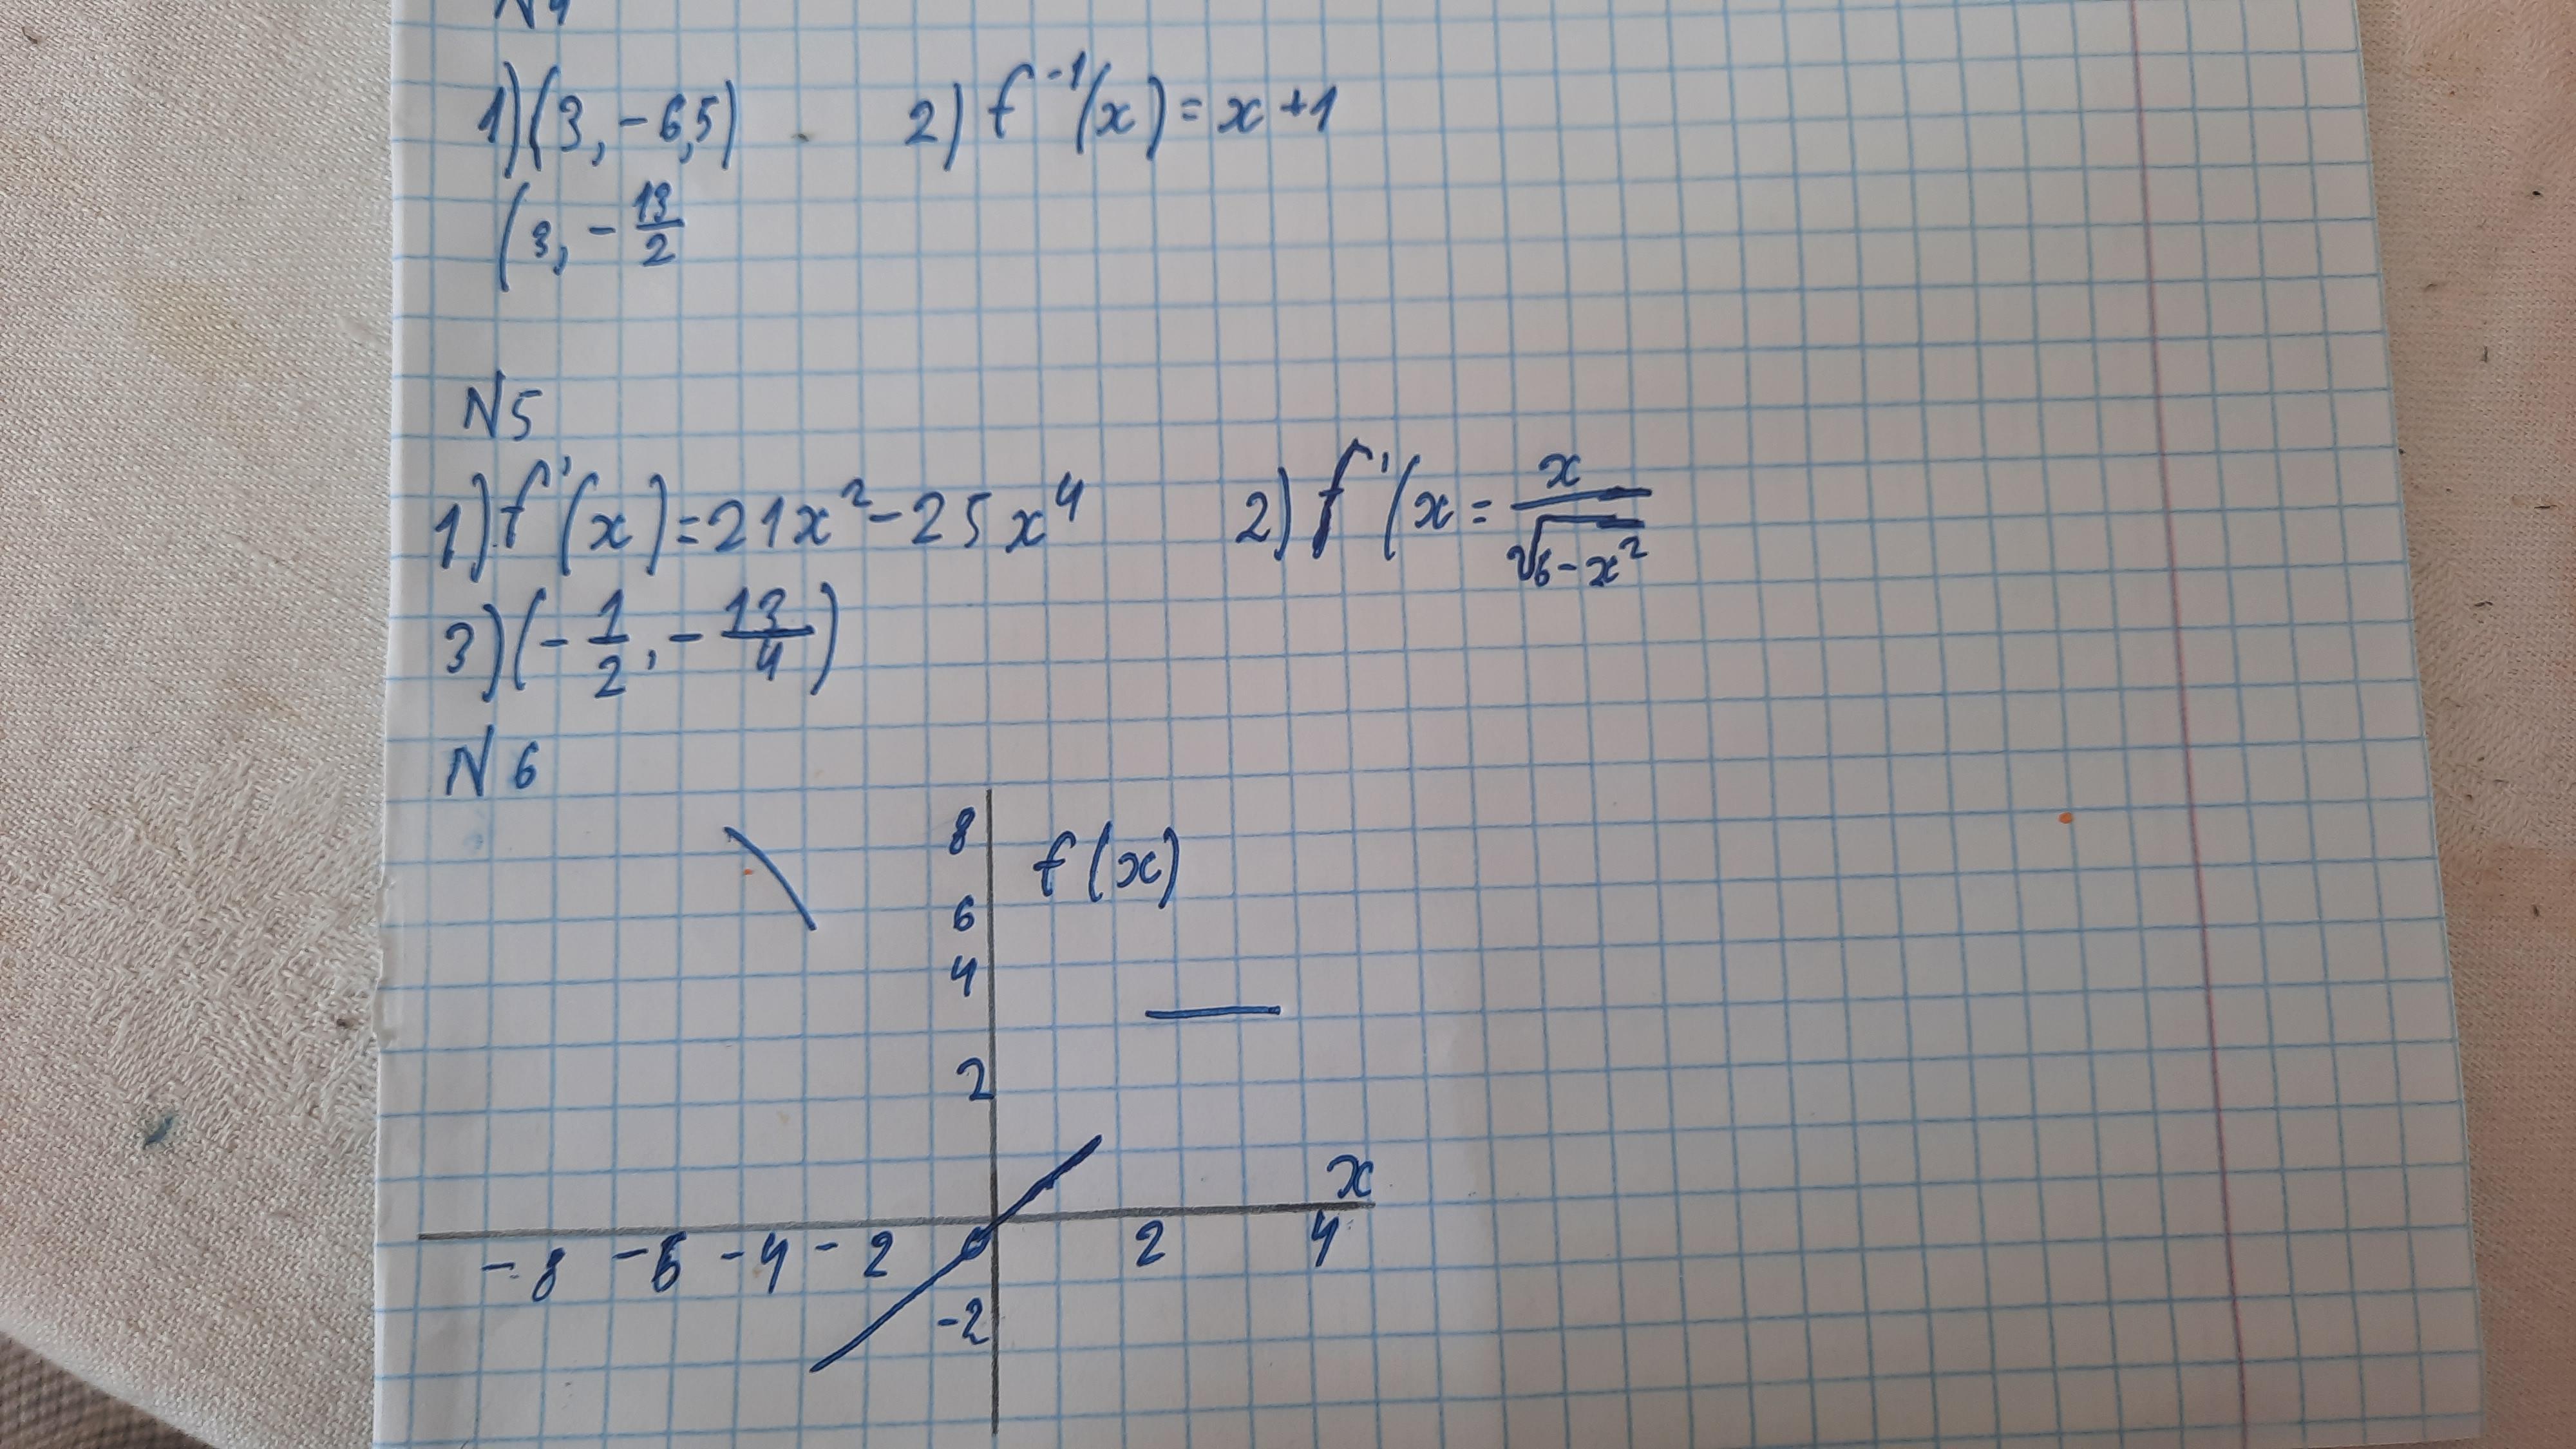 N4
1) (3, -6,5) 2) f⁻¹(x) = x + 1
(3, - 13/2
N5
1) f'(x) = 21x² - 25x⁴ 2) f'(x = x/√6-x²
3) (- 1/2, - 13/4)
N6
8
f(x)
6
4
2
x
-8 -6 -4 -2 0 2 4
-2